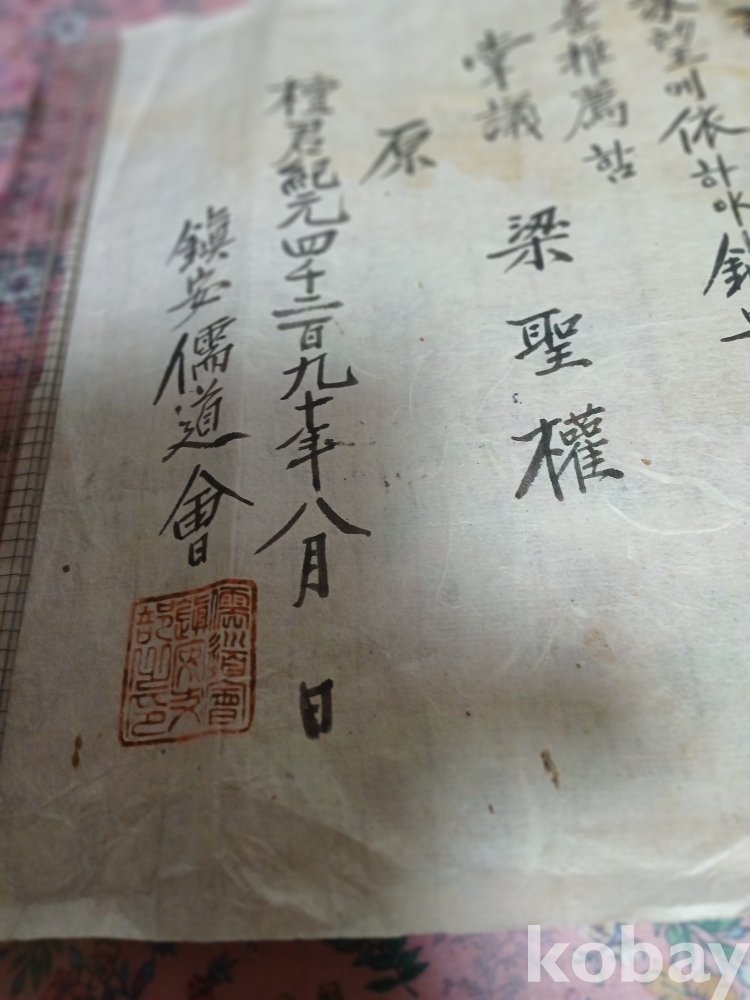 望에依하야
推薦함
掌議 梁聖權
原
檀君紀元四千二百九十年八月 日
鎭安儒道會
儒道會
鎭安支
部之印
kobay